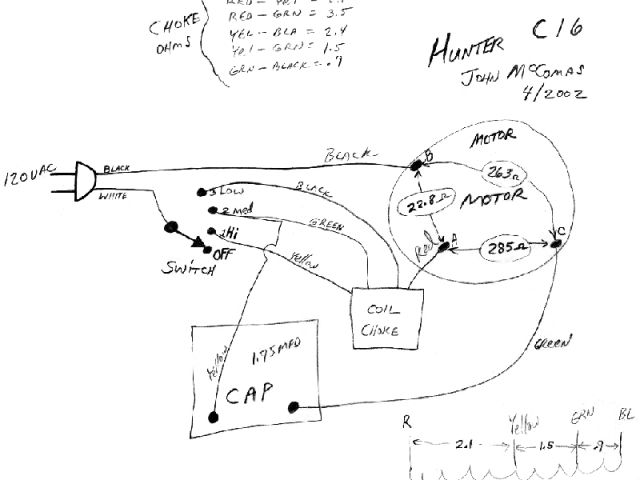 CHOKE
OHMS
RED - GRN = 3.5
YEL - BLA = 2.4
YEL - GRN = 1.5
GRN - BLACK = .9
HUNTER C16
JOHN McCOMAS
4/2002
120VAC
BLACK
WHITE
BLACK
MOTOR
B
263Ω
22.8Ω
MOTOR
Red
A
285Ω
C
3 LOW
BLACK
2 Med
GREEN
1 Hi
Yellow
OFF
SWITCH
COIL
CHOKE
Yellow
1.75 MFD
CAP
GREEN
R
Yellow
GRN
BL
2.1
1.5
.9